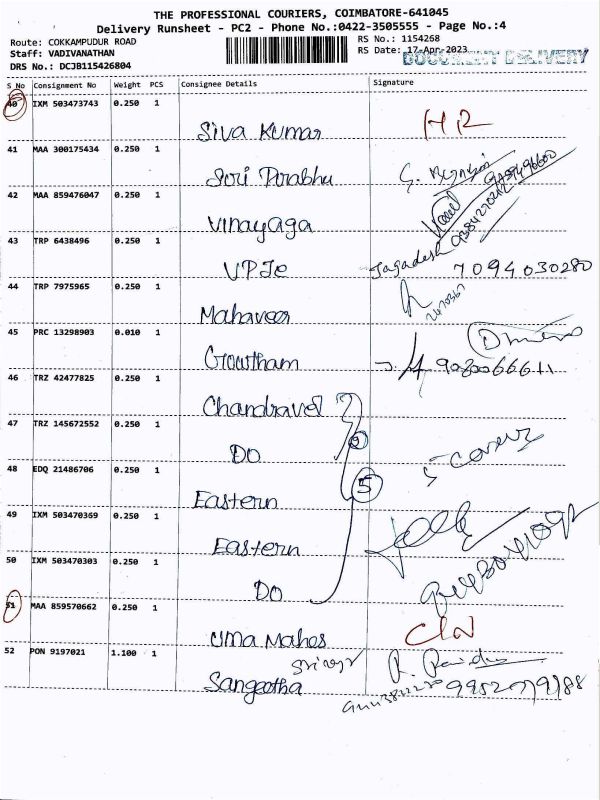 THE PROFESSIONAL COURIERS, COIMBATORE-641045
Delivery Runsheet - PC2 - Phone No.:0422-3505555 - Page No.:4
Route: COKKAMPUDUR ROAD
RS No.: 1154268
Staff: VADIVANATHAN
RS Date: 17-Apr-2023
DOCUMENT DELIVERY
DRS No.: DCJB115426804
S No Consignment No Weight PCS Consignee Details Signature
40 IXM 503473743 0.250 1
Siva Kumar
41 MAA 300175434 0.250 1
Sori Prabhu
42 MAA 859476047 0.250 1
Vinayaga
43 TRP 6438496 0.250 1
Jagadesh 7094030280
44 TRP 7975965 0.250 1
Mahaveer
45 PRC 13298903 0.010 1
Gowtham
46 TRZ 42477825 0.250 1
Chandravel
47 TRZ 145672552 0.250 1
DO
48 EDQ 21486706 0.250 1
5
Eastern
49 IXM 503470369 0.250 1
Eastern
50 IXM 503470303 0.250 1
DO
51 MAA 859570662 0.250 1
Uma Mahes
52 PON 9197021 1.100 1
Sangeetha